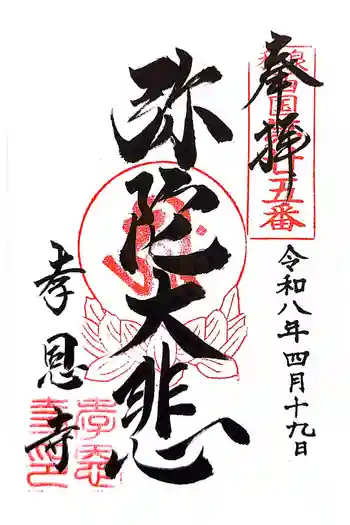 奉拝
和泉西国第廿五番
令和八年四月十九日
弥陀大悲
孝恩寺
孝恩寺印